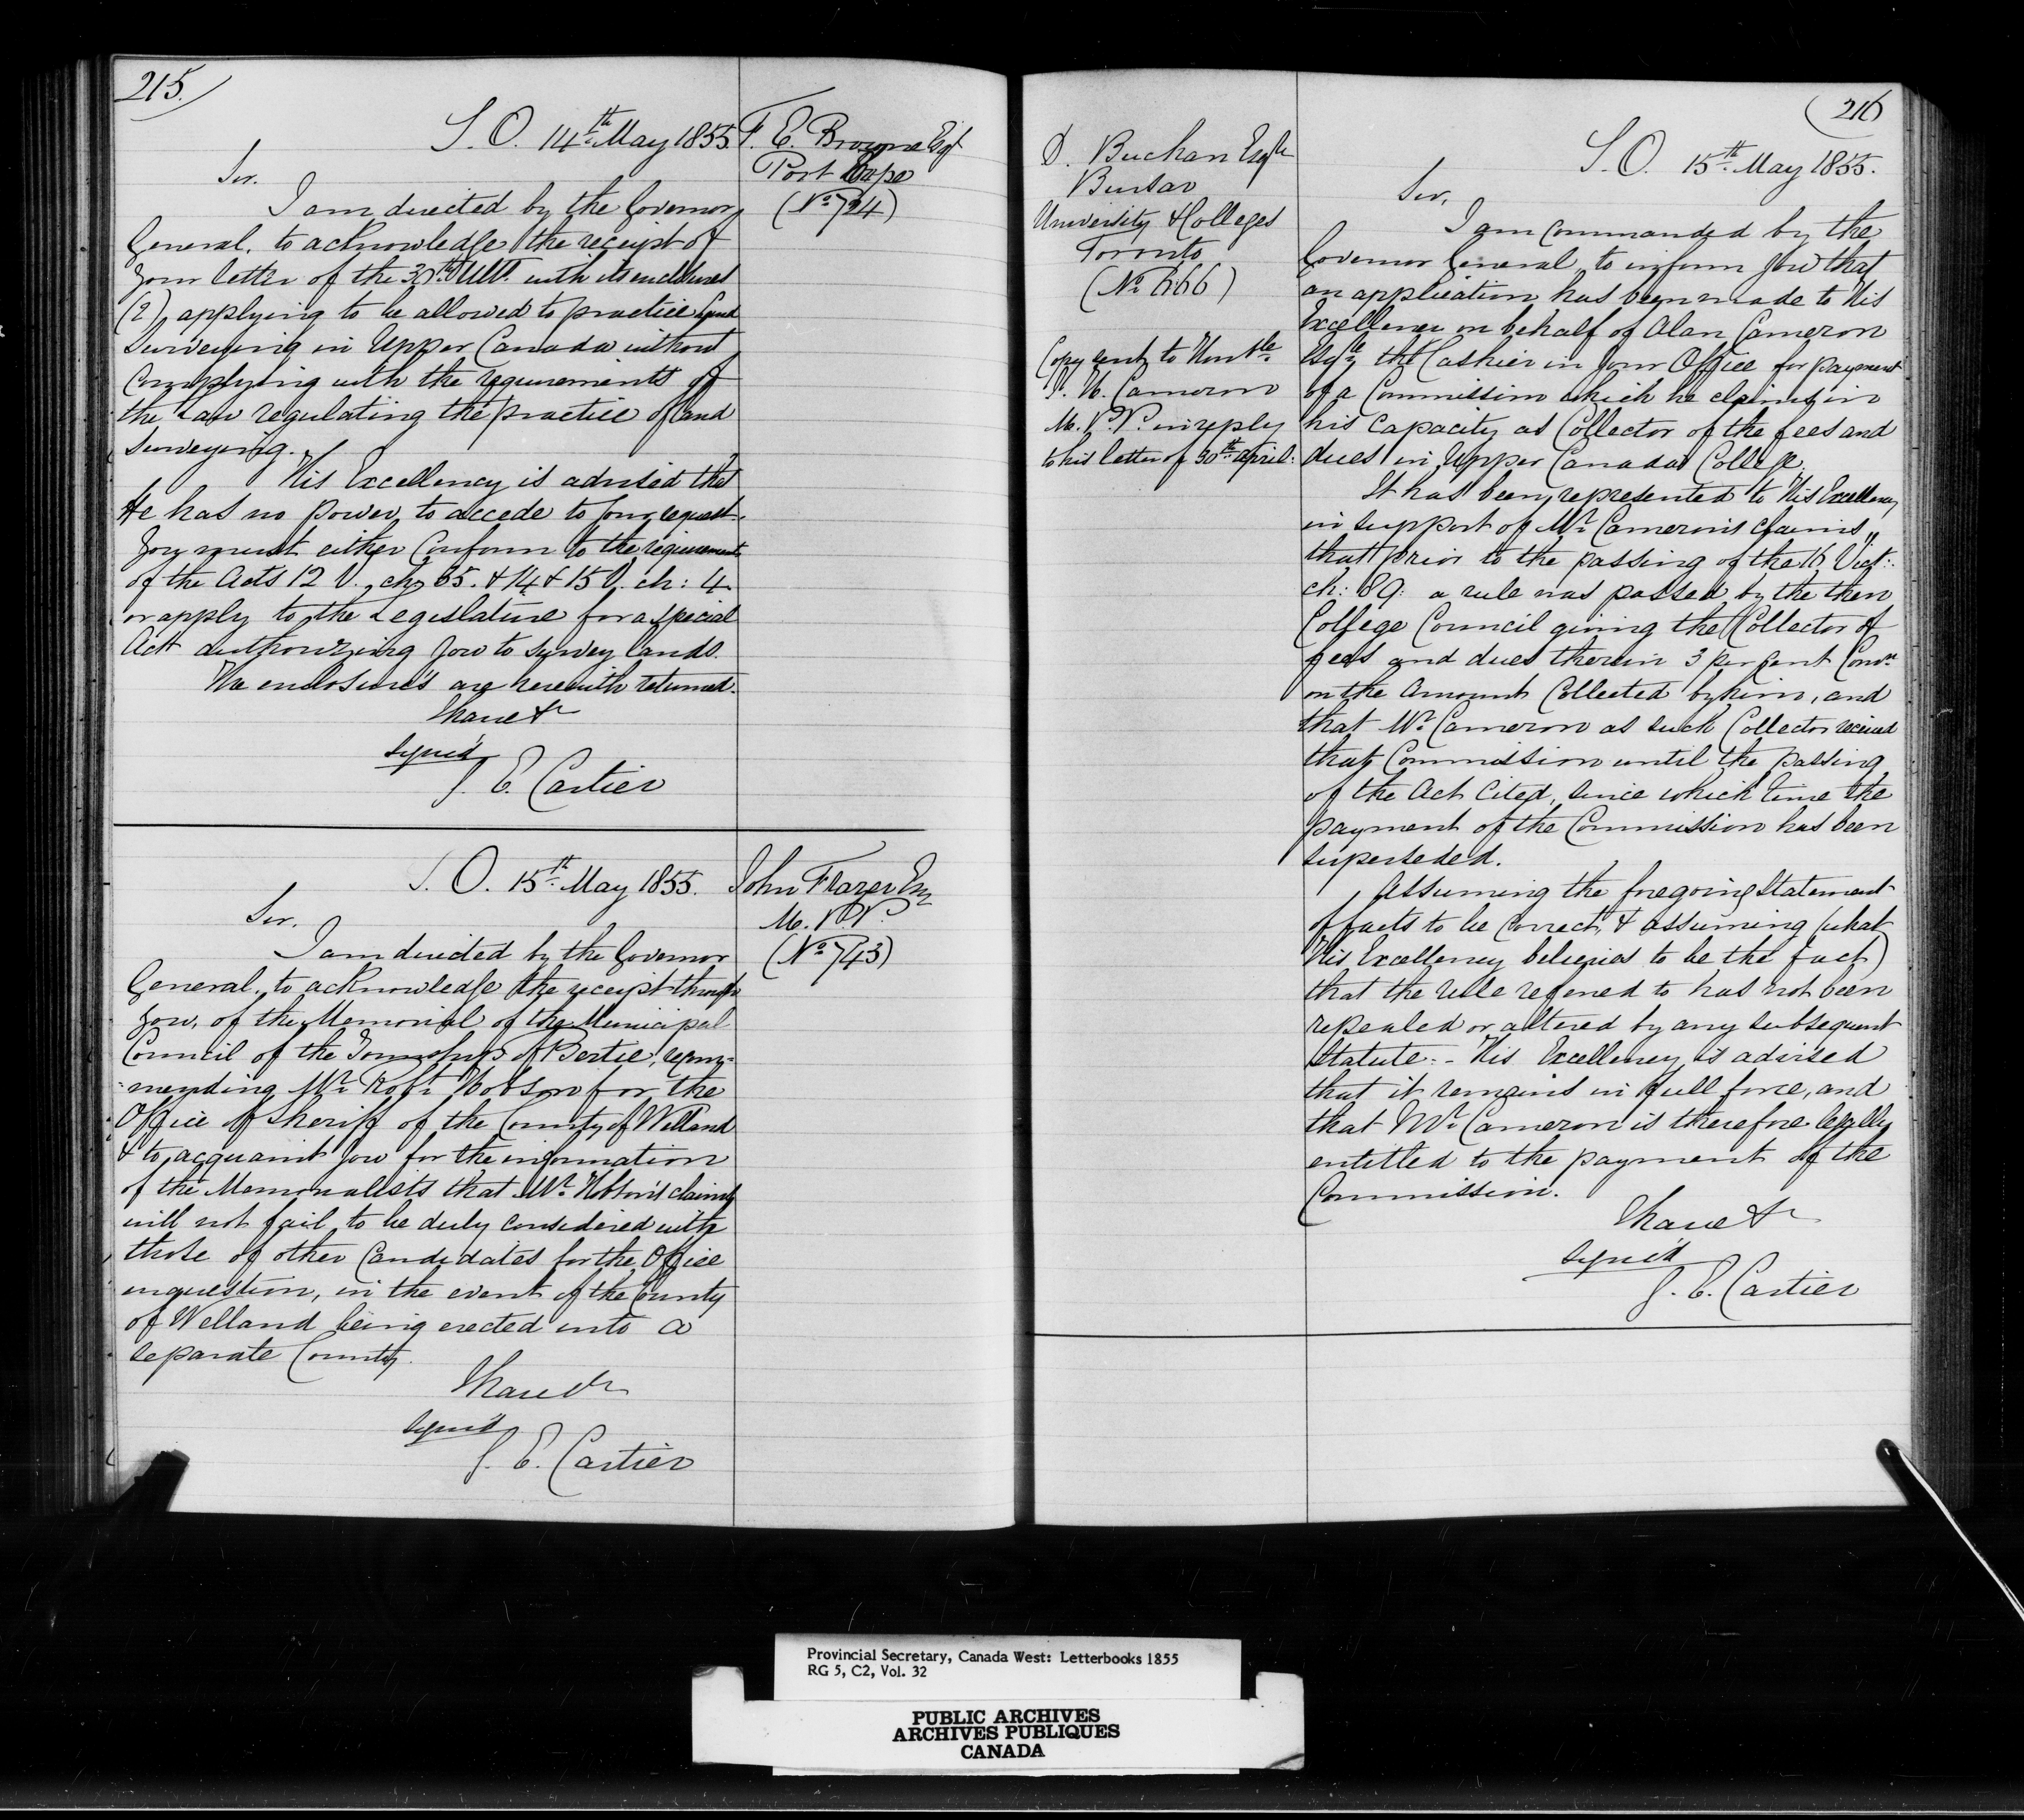 215.
S. O. 14th May 1855.
F. E. Browne Esqr
Port Hope
(No 724)
Sir.
I am directed by the Governor
General, to acknowledge the receipt of
your letter of the 30th Ulto. with its enclosures
(2), applying to be allowed to practice Land
Surveying in Upper Canada without
Complying with the requirements of
the Law regulating the practice of Land
Surveying.
His Excellency is advised that
He has no power to accede to your request.
You must either Conform to the requirements
of the Acts 12 V. ch: 35. & 14 & 15 V. ch: 4
or apply to the Legislature for a special
Act authorizing you to survey lands.
The enclosures are herewith returned.
I have &c
Signed
G. E. Cartier
S. O. 15th May 1855.
John Frazer Esq
M. P. P.
(No 743)
Sir.
I am directed by the Governor
General, to acknowledge the receipt through
you, of the Memorial of the Municipal
Council of the Township of Bertie, recom=
=mending Mr. Robt. Hobson for the
Office of Sheriff of the County of Welland
& to acquaint you for the information
of the Memorialists that Mr. Hobson's claims
will not fail to be duly considered with
those of other Candidates for the Office
in question, in the event of the County
of Welland being erected into a
separate County.
I have &c
Signed
G. E. Cartier
216
D. Buchan Esqre
Bursar
University & Colleges
Toronto
(No 666)
Copy sent to Honble.
Cameron
M. P. P. in reply
to his letter of 30th April.
S. O. 15th May 1855.
Sir,
I am Commanded by the
Governor General to inform you that
an application has been made to His
Excellency on behalf of Alan Cameron
Esqre, the Cashier in your Office for payment
of a Commission which he claims in
his Capacity as Collector of the fees and
dues in Upper Canada College.
It has been represented to His Excellency
in support of Mr. Cameron's claims,
that prior to the passing of the 16 Vict:
ch: 89: a rule was passed by the then
College Council giving the Collector of
fees and dues therein 3 per Cent Comn.
on the Amount Collected by him, and
that Mr. Cameron as such Collector received
that Commission until the passing
of the Act Cited, since which time the
payment of the Commission has been
superseded.
Assuming the foregoing Statement
of facts to be Correct, & assuming (what
His Excellency believes to be the fact)
that the rule referred to has not been
repealed or altered by any subsequent
Statute: - His Excellency is advised
that it remains in full force, and
that Mr. Cameron is therefore legally
entitled to the payment of the
Commission.
I have &c
Signed
G. E. Cartier
Provincial Secretary, Canada West: Letterbooks 1855
RG 5, C2, Vol. 32
PUBLIC ARCHIVES
ARCHIVES PUBLIQUES
CANADA